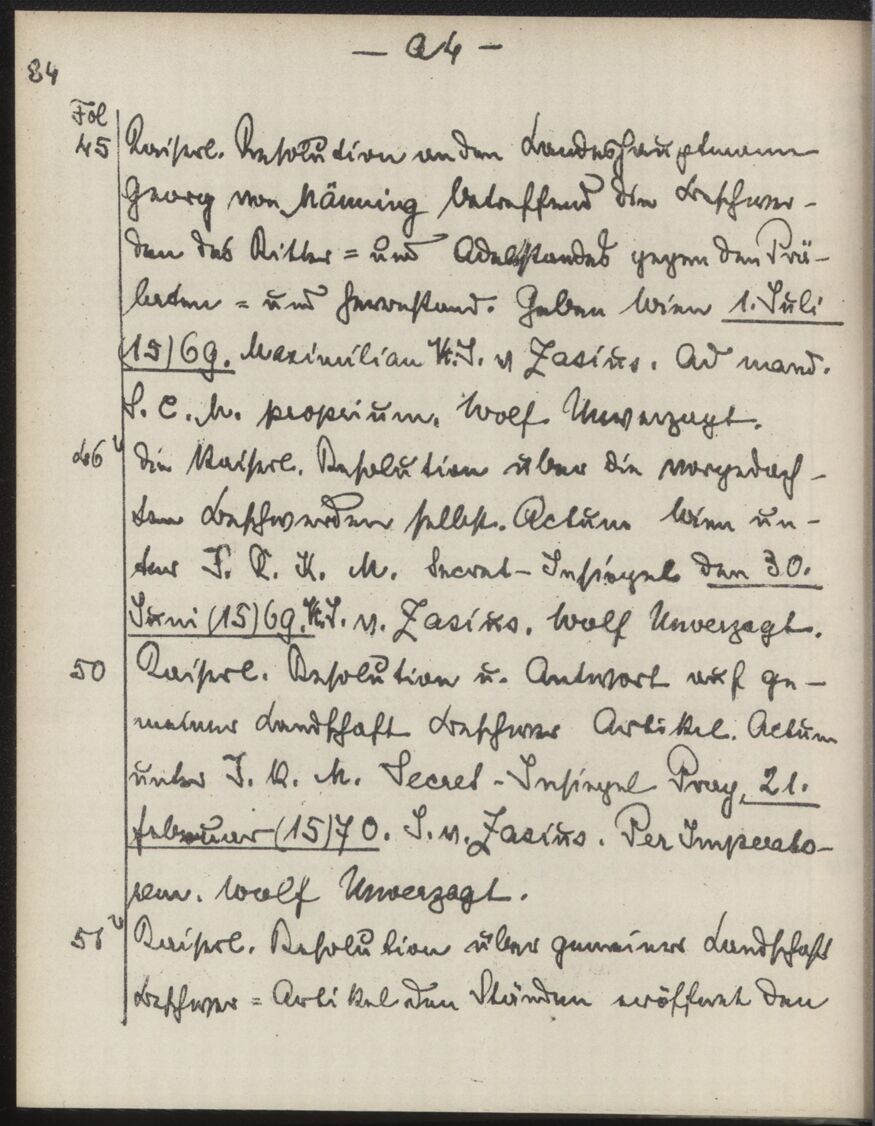 — A4 —
84
Fol
45 Kaiserl. Resolution an den Landeshauptmann
Georg von Männing betreffend die Beschwer-
den des Ritter= und Adelsstandes gegen den Prä-
laten= und Herrenstand. Geben Wien 1. Juli
(15)69. Maximilian V. J. v Zasius. Ad mand.
S. C. M. proprium. Wolf Unverzagt.
46v die Kaiserl. Resolution über die vorgedach-
ten Beschwerden selbst. Actum Wien un-
ter I. R. K. M. Secret-Insiegel den 30.
Juni (15)69. V. J. v. Zasius. Wolf Unverzagt.
50 Kaiserl. Resolution u. Antwort auf ge-
meiner Landschaft Beschwer Artikel. Actum
unter I. K. M. Secret-Insiegel Prag, 21.
Februar (15)70. J. v. Zasius. Per Imperato-
rem. Wolf Unverzagt.
51v Kaiserl. Resolution über gemeiner Landschaft
Beschwer=Artikel den Ständen eröffnet den